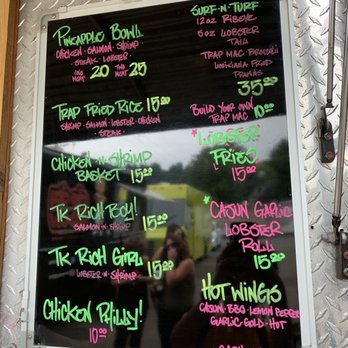 PINEAPPLE BOWL
CHICKEN - SALMON - SHRIMP
- STEAK - LOBSTER -
ONE MEAT 20 TWO MEAT 25
TRAP FRIED RICE 15.00
SHRIMP - SALMON - LOBSTER - CHICKEN
STEAK -
CHICKEN-N-SHRIMP
BASKET 15.00
TK RICH BOY! 15.00
SALMON-N-SHRIMP
TK RICH GIRL 15.00
LOBSTER-N-SHRIMP
CHICKEN PHILLY!
10.00
SURF-N-TURF
12oz RIBEYE
5oz LOBSTER
TAIL
TRAP MAC - BROCCOLI
LOUISIANA FRIED
35.00
BUILD YOUR OWN
TRAP MAC 10.00
*LOBSTER
FRIES
15.00
*CAJUN GARLIC
LOBSTER
ROLL
15.00
HOT WINGS
CAJUN - BBQ - LEMON PEPPER
GARLIC GOLD - HOT